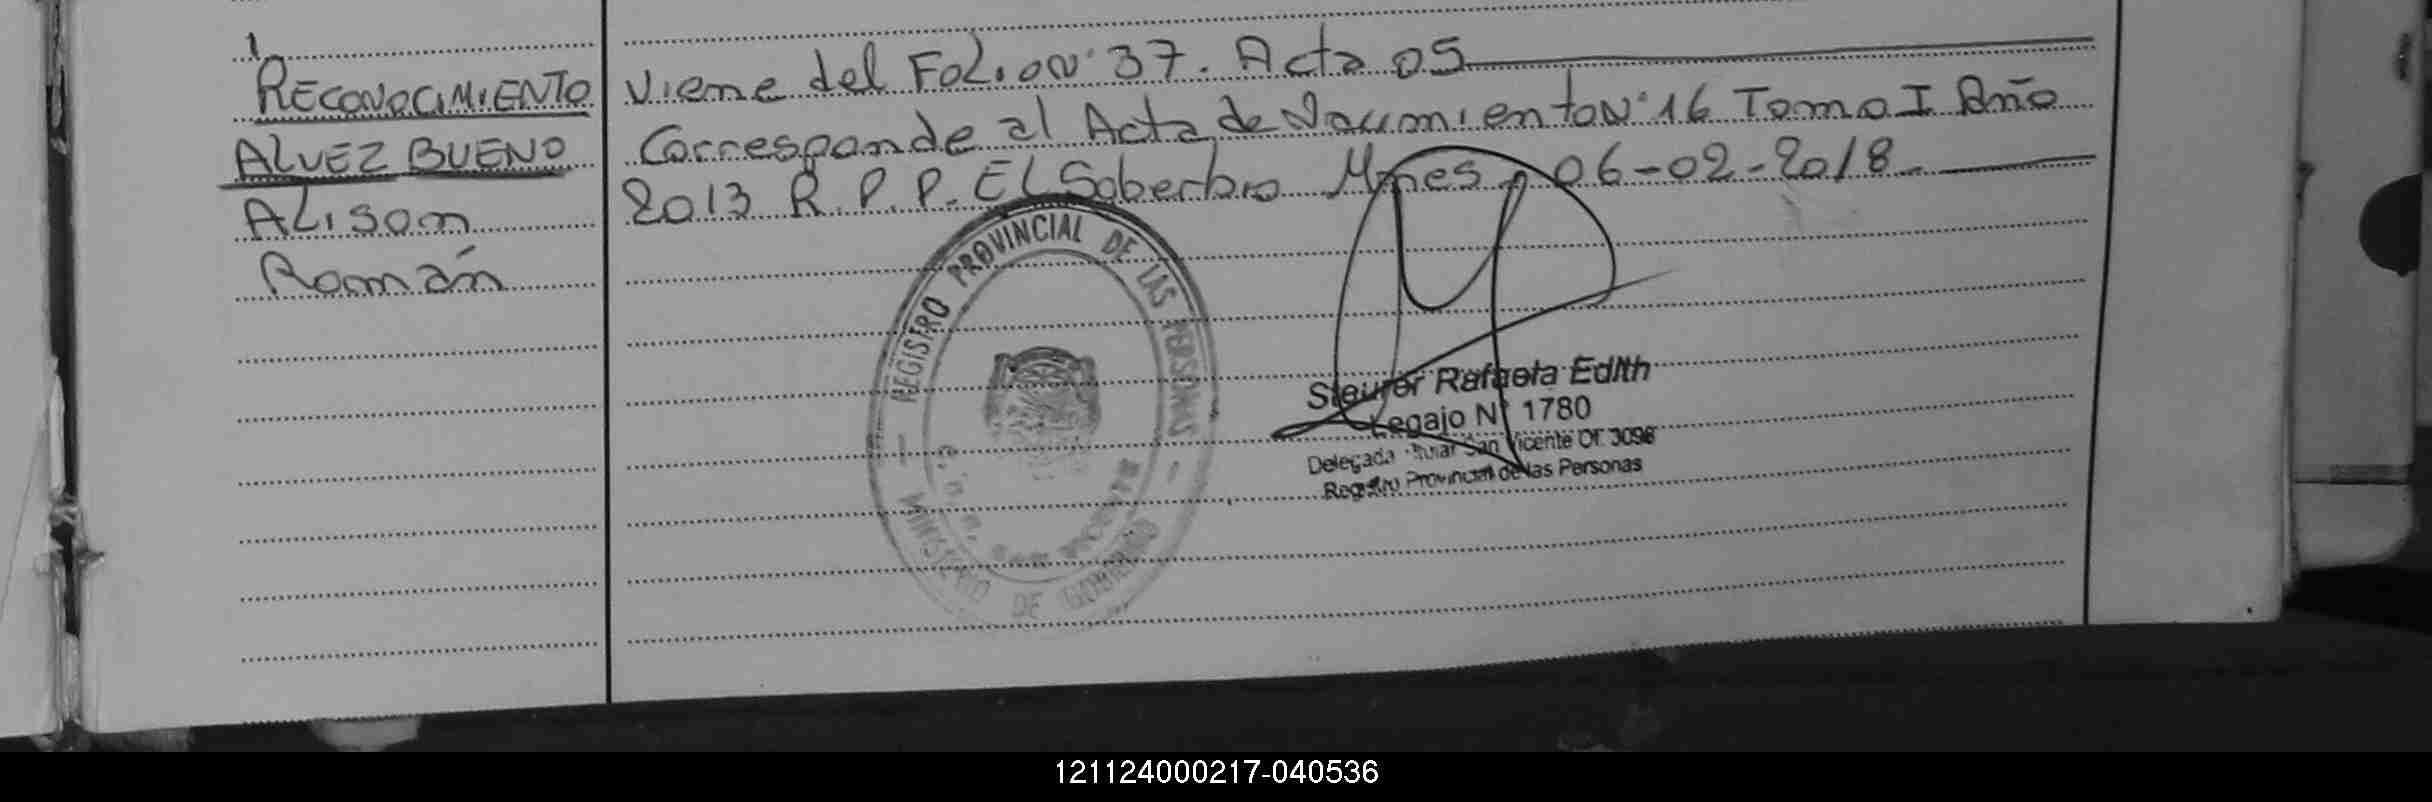 RECONOCIMIENTO
ALVEZ BUENO
ALison
Román
Viene del Folio Nº 37. Acta 05
Corresponde al Acta de Nacimiento Nº 16 Tomo I Año
2013 R.P.P. El Soberbio Mnes, 06-02-2018
REGISTRO PROVINCIAL DE LAS PERSONAS
MINISTERIO DE GOBIERNO
Steurer Rafaela Edith
Legajo Nº 1780
Delegada Titular San Vicente Of. 3096
Registro Provincial de las Personas
121124000217-040536